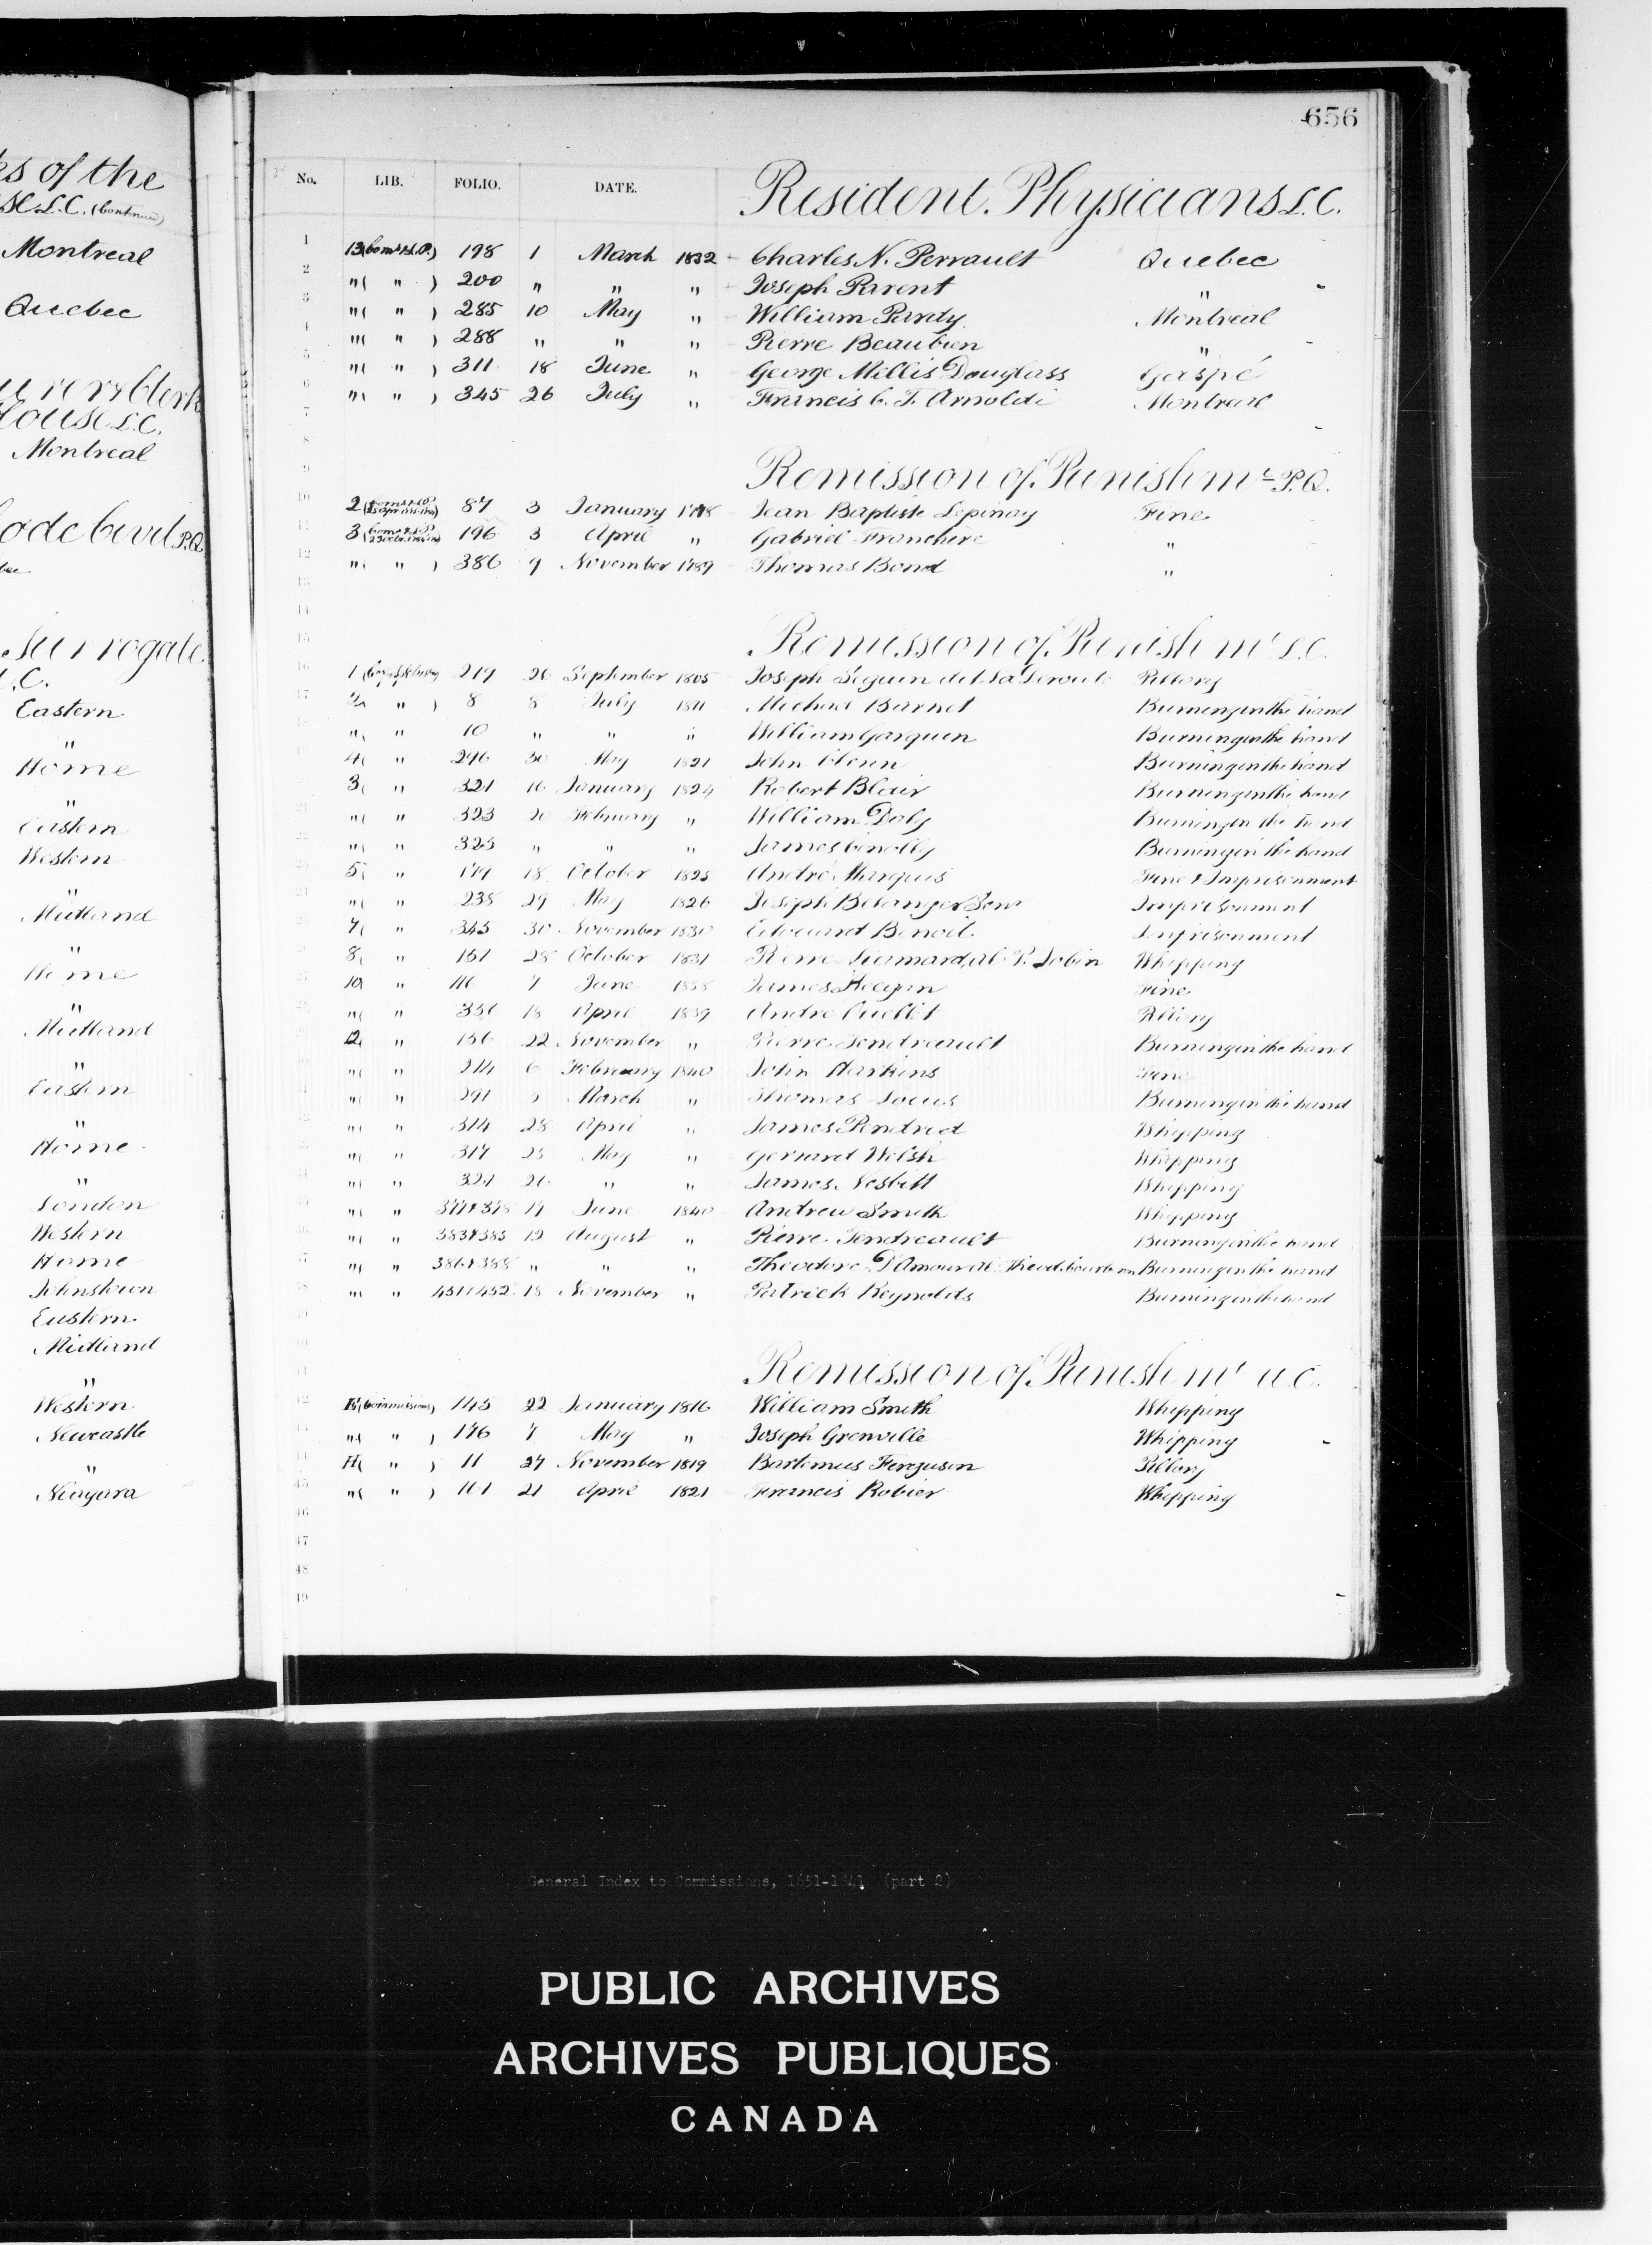 ks of the
se L.C. (Continued)
Montreal
Quebec
urer & Clerk
House L.C.
Montreal
Code Civil P.Q.
bec
Surrogate
L.C.
Eastern
"
Home
"
Eastern
Western
"
Midland
"
Home
"
Midland
"
Eastern
"
Home
"
London
Western
Home
Johnstown
Eastern
Midland
"
Western
Newcastle
"
Niagara
656
No. LIB. FOLIO. DATE. Resident Physicians L.C.
1 13 198 1 March 1832 Charles N. Perrault Quebec
2 "( " ) 200 " " " Joseph Parent "
3 "( " ) 285 10 May " William Pardy Montreal
4 "( " ) 288 " " " Pierre Beaubien "
5 "( " ) 311 18 June " George Millis Douglass Gaspé
6 "( " ) 345 26 July " Francis C. T. Arnoldi Montreal
7
8
9 Remission of Punishmt P.Q.
10 2 87 3 January Jean Baptiste Lepinay Fine
11 3 196 3 April " Gabriel Franchere "
12 "( " ) 386 9 November 1789 Thomas Bond "
13
14
15 Remission of Punishmt L.C.
16 1 219 26 September 1805 Joseph Seguin dit La Deroute Pillory
17 2( " ) 8 8 July 1811 Michael Burnet Burning in the hand
"( " 10 " " " William Garquen Burning in the hand
4( " 296 30 May 1821 John Glenn Burning in the hand
3( " 321 16 January 1824 Robert Blair Burning in the hand
21 "( " 323 20 February " William Daly Burning in the hand
22 "( " 325 " " " James Conolly Burning in the hand
5( " 179 18 October 1825 André Marquis Fine & Imprisonment
24 "( " 238 29 May 1826 Joseph Belanger Senr Imprisonment
7( " 345 30 November 1830 Edouard Benoit Imprisonment
8( " 151 28 October 1831 Pierre al. P. Jobin Whipping
10( " 7 June 1838 James Keegan Fine
"( " 18 April 1839 Andre Ouellet Pillory
12( " 156 22 November " Pierre Gendreault Burning in the hand
"( " 214 6 February 1840 John Harkins Fine
"( " 291 March " Thomas Burning in the hand
"( " 314 28 April " James Pendred Whipping
"( " 317 25 May " Gerrard Welsh Whipping
"( " 321 26 " " James Nesbitt Whipping
"( " 377 & 378 June 1840 Andrew Smith Whipping
"( " 383 & 385 19 August " Pierre Gendreault Burning in the hand
"( " 386 & 388 " " " Theodore D'Amour al. Burning in the hand
"( " 451 & 452 18 November " Patrick Reynolds Burning in the hand
39
40
41 Remission of Punishmt U.C.
42 (Commissions) 145 22 January 1816 William Smith Whipping
43 "( " ) 176 7 May " Joseph Grenville Whipping
44 H( " ) 11 27 November 1819 Bartemus Ferguson Pillory
45 "( " ) 161 21 April 1821 Francis Robier Whipping
46
47
48
49
General Index to Commissions, 1651-1841 (part 2)
PUBLIC ARCHIVES
ARCHIVES PUBLIQUES
CANADA